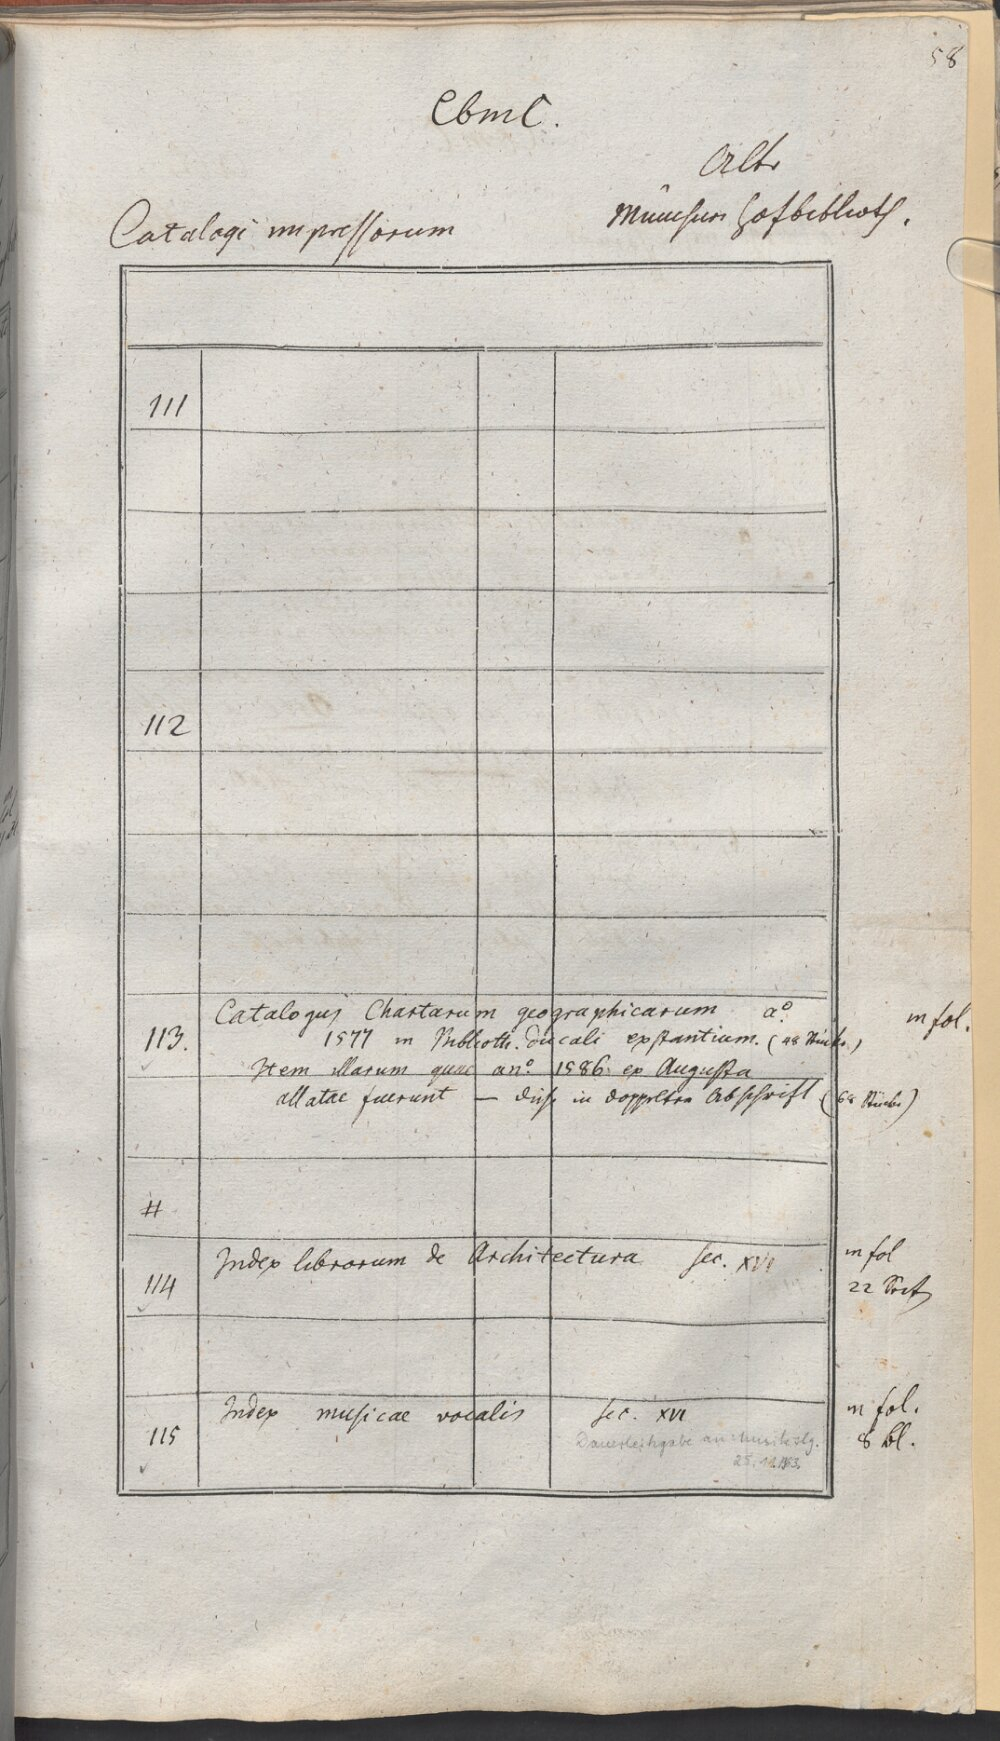 58
CbmC.
Alte
Münchner Hofbiblioth.
Catalogi impressorum
111
112
Catalogus Chartarum geographicarum aº
113. 1577 in Biblioth. ducali exstantium. (48 Stücke.) in fol.
Item illarum quae anº 1586 ex Augusta
allatae fuerunt — dise in doppelter Abschrift (68 Stücke)
#
Index librorum de Architectura sec. XVI in fol
114 22
Index musicae vocalis sec. XVI in fol.
115 8 bl.
Dauerleihgabe an: Musikslg.